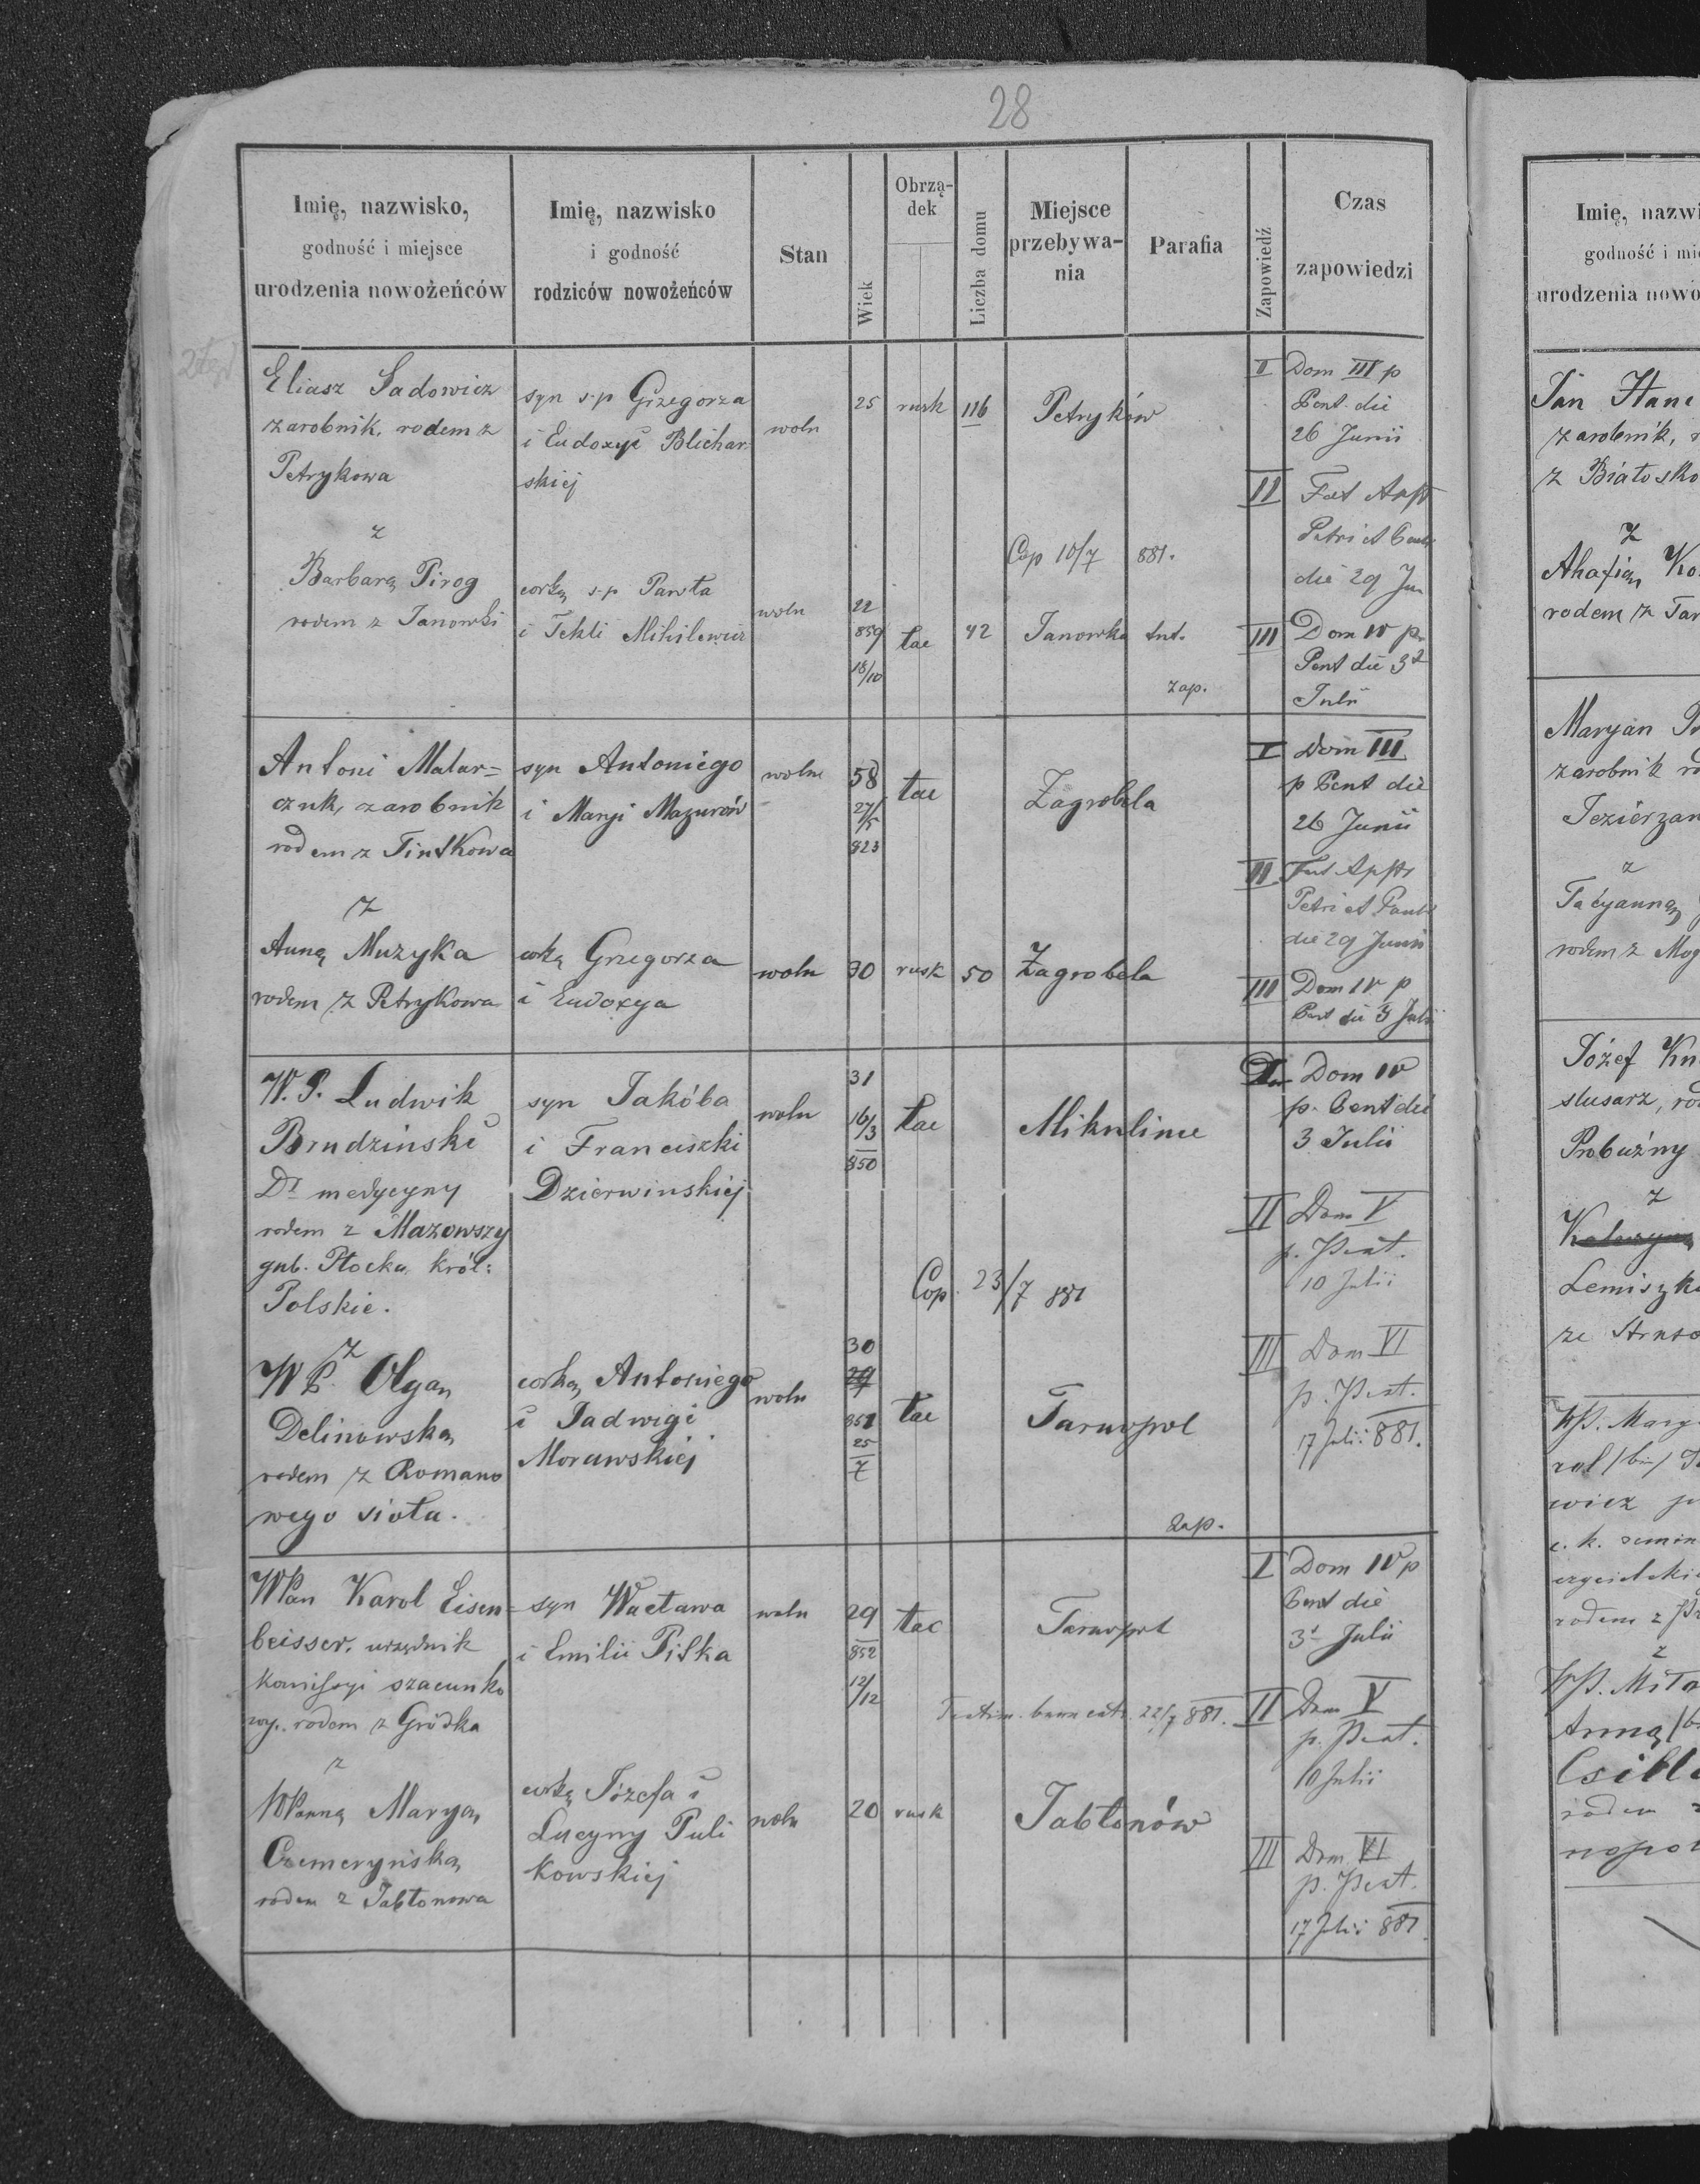 28
Imię, nazwisko,
godność i miejsce
urodzenia nowożeńców
Imię, nazwisko
i godność
rodziców nowożeńców
Stan
Wiek
Obrzą-
dek
Liczba domu
Miejsce
przebywa-
nia
Parafia
Zapowiedź
Czas
zapowiedzi
Eliasz Sadowicz
zarobnik, rodem z
Petrykowa
z
Barbarą Pirog
rodem z Janowki
syn s.p Grzegorza
i Eudoxyi Blichar-
skiej
corką s.p Pawła
i Tekli Mihilewicz
woln
woln
25
22
859
18/10
rusk
łac
116
42
Petryków
Cop 10/7 881.
Janowka tnt.
zap.
II Dom III p
Pent. die
26 Junii
II Fest Apst
Petri et Pauli
die 29 Jun
III Dom IV p
Pent die 3
Julii
Antoni Matar=
czuk, zarobnik
rodem z
z
Anną Muzyka
rodem z Petrykowa
syn Antoniego
i Maryi Mazurów
corką Grzegorza
i Eudoxya
woln
woln
58
27/5
823
30
łac
rusk
50
Zagrobela
Zagrobela
I Dom III
p Pent die
26 Junii
II Fest Apst
Petri et Pauli
die 29 Junii
III Dom IV p
Pent die 3 Julii
W. P. Ludwik
Brudziński
Dr medycyny
rodem z Mazowszy
gub. Płocka król:
Polskie.
z
W P. Olgą
Delinowską
rodem z Romano
wego sioła.
syn Jakóba
i Franciszki
Dzierwinskiej
corką Antoniego
i Jadwigi
Morawskiej
woln
woln
31
16/3
850
30
29
851
25
7
łac
łac
Mikulince
Cop. 23/7 881
Tarnopol
zap.
I Dom IV
p. Pent die
3 Julii
II Dom V
p. Pent.
10 Julii
III Dom VI
p. Pent.
17 Julii 881.
WPan Karol Eisen=
beisser, urzędnik
komissyi szacunko
wy. rodem z Gródka
z
WPanną Maryą
Czemeryńską
rodem z Jabłonowa
syn Wacława
i Emilii Pilka
corką Józefa i
Lucyny Puli
kowskiej
woln
woln
29
852
12/12
20
łac
rusk
Tarnopol
22/7 881.
Jabłonów
I Dom IV p
Pent die
3 Julii
II Dom V
p. Pent.
10 Julii
III Dom VI
p. Pent.
17 Julii 881.
Imię, nazwi
godność i mie
urodzenia nowo
Jan
zarobnik,
z Białosko
z
Ahafią Ko
rodem z Tar
Maryan
zarobnik ro
Jezierzan
z
Tacyanną
rodem z Mog
Józef Kn
slusarz, ro
Probużny
z
Lemiszka
ze
WP. Mary
wicz
c. k. semin
rodem z
z
WP.
Anną
Csill
rodem
nopol